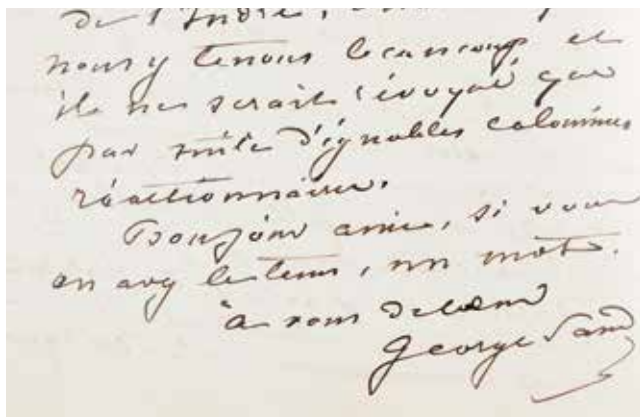 de l'Indre,
nous y tenons beaucoup et
il ne serait révoqué que
par suite d'ignobles calomnies
réactionnaires.
Bonjour amie, si vous
en avez le tems, un mot.
à vous de cœur
George Sand